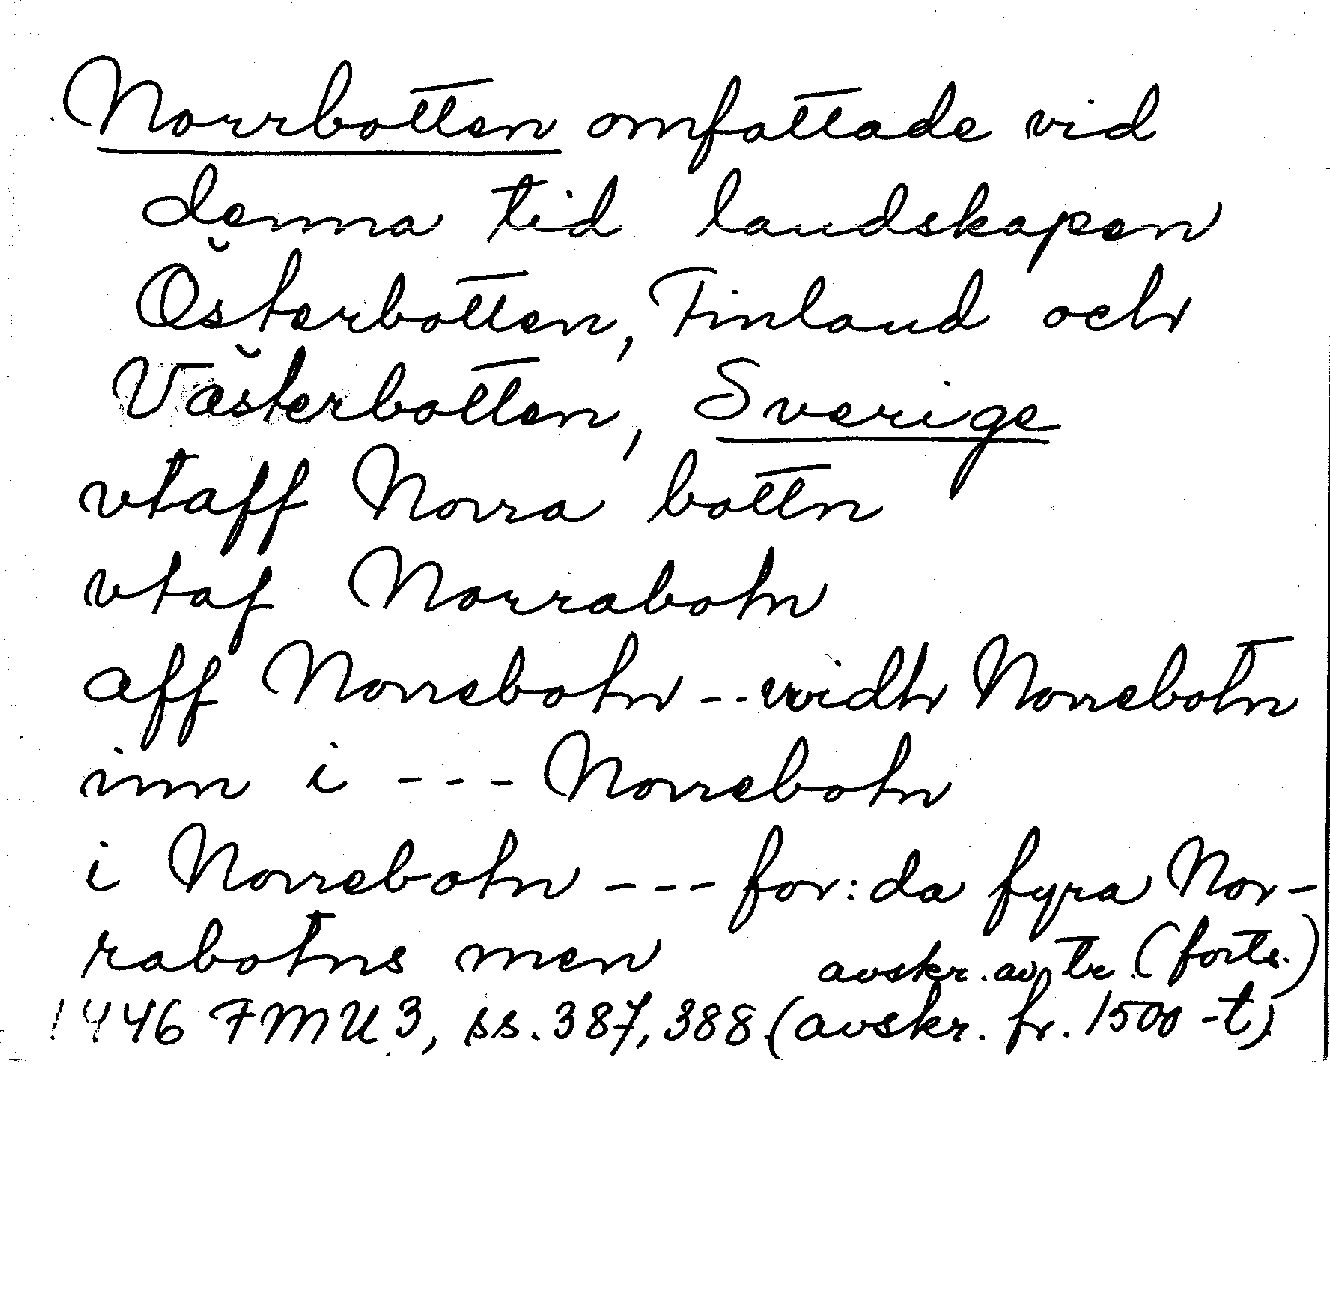 Norrbotten omfattade vid
denna tid landskapen
Österbotten, Finland och
Västerbotten, Sverige
vtaff Norra bottn
vtaf Norrabotn
aff Norrebotn -- widh Norrebotn
inn i --- Norrebotn
i Norrebotn --- for:da fyra Nor-
rabotns men avskr. av tr. (forts.)
1446 FMU 3, ss. 387, 388 (avskr. fr. 1500-t)